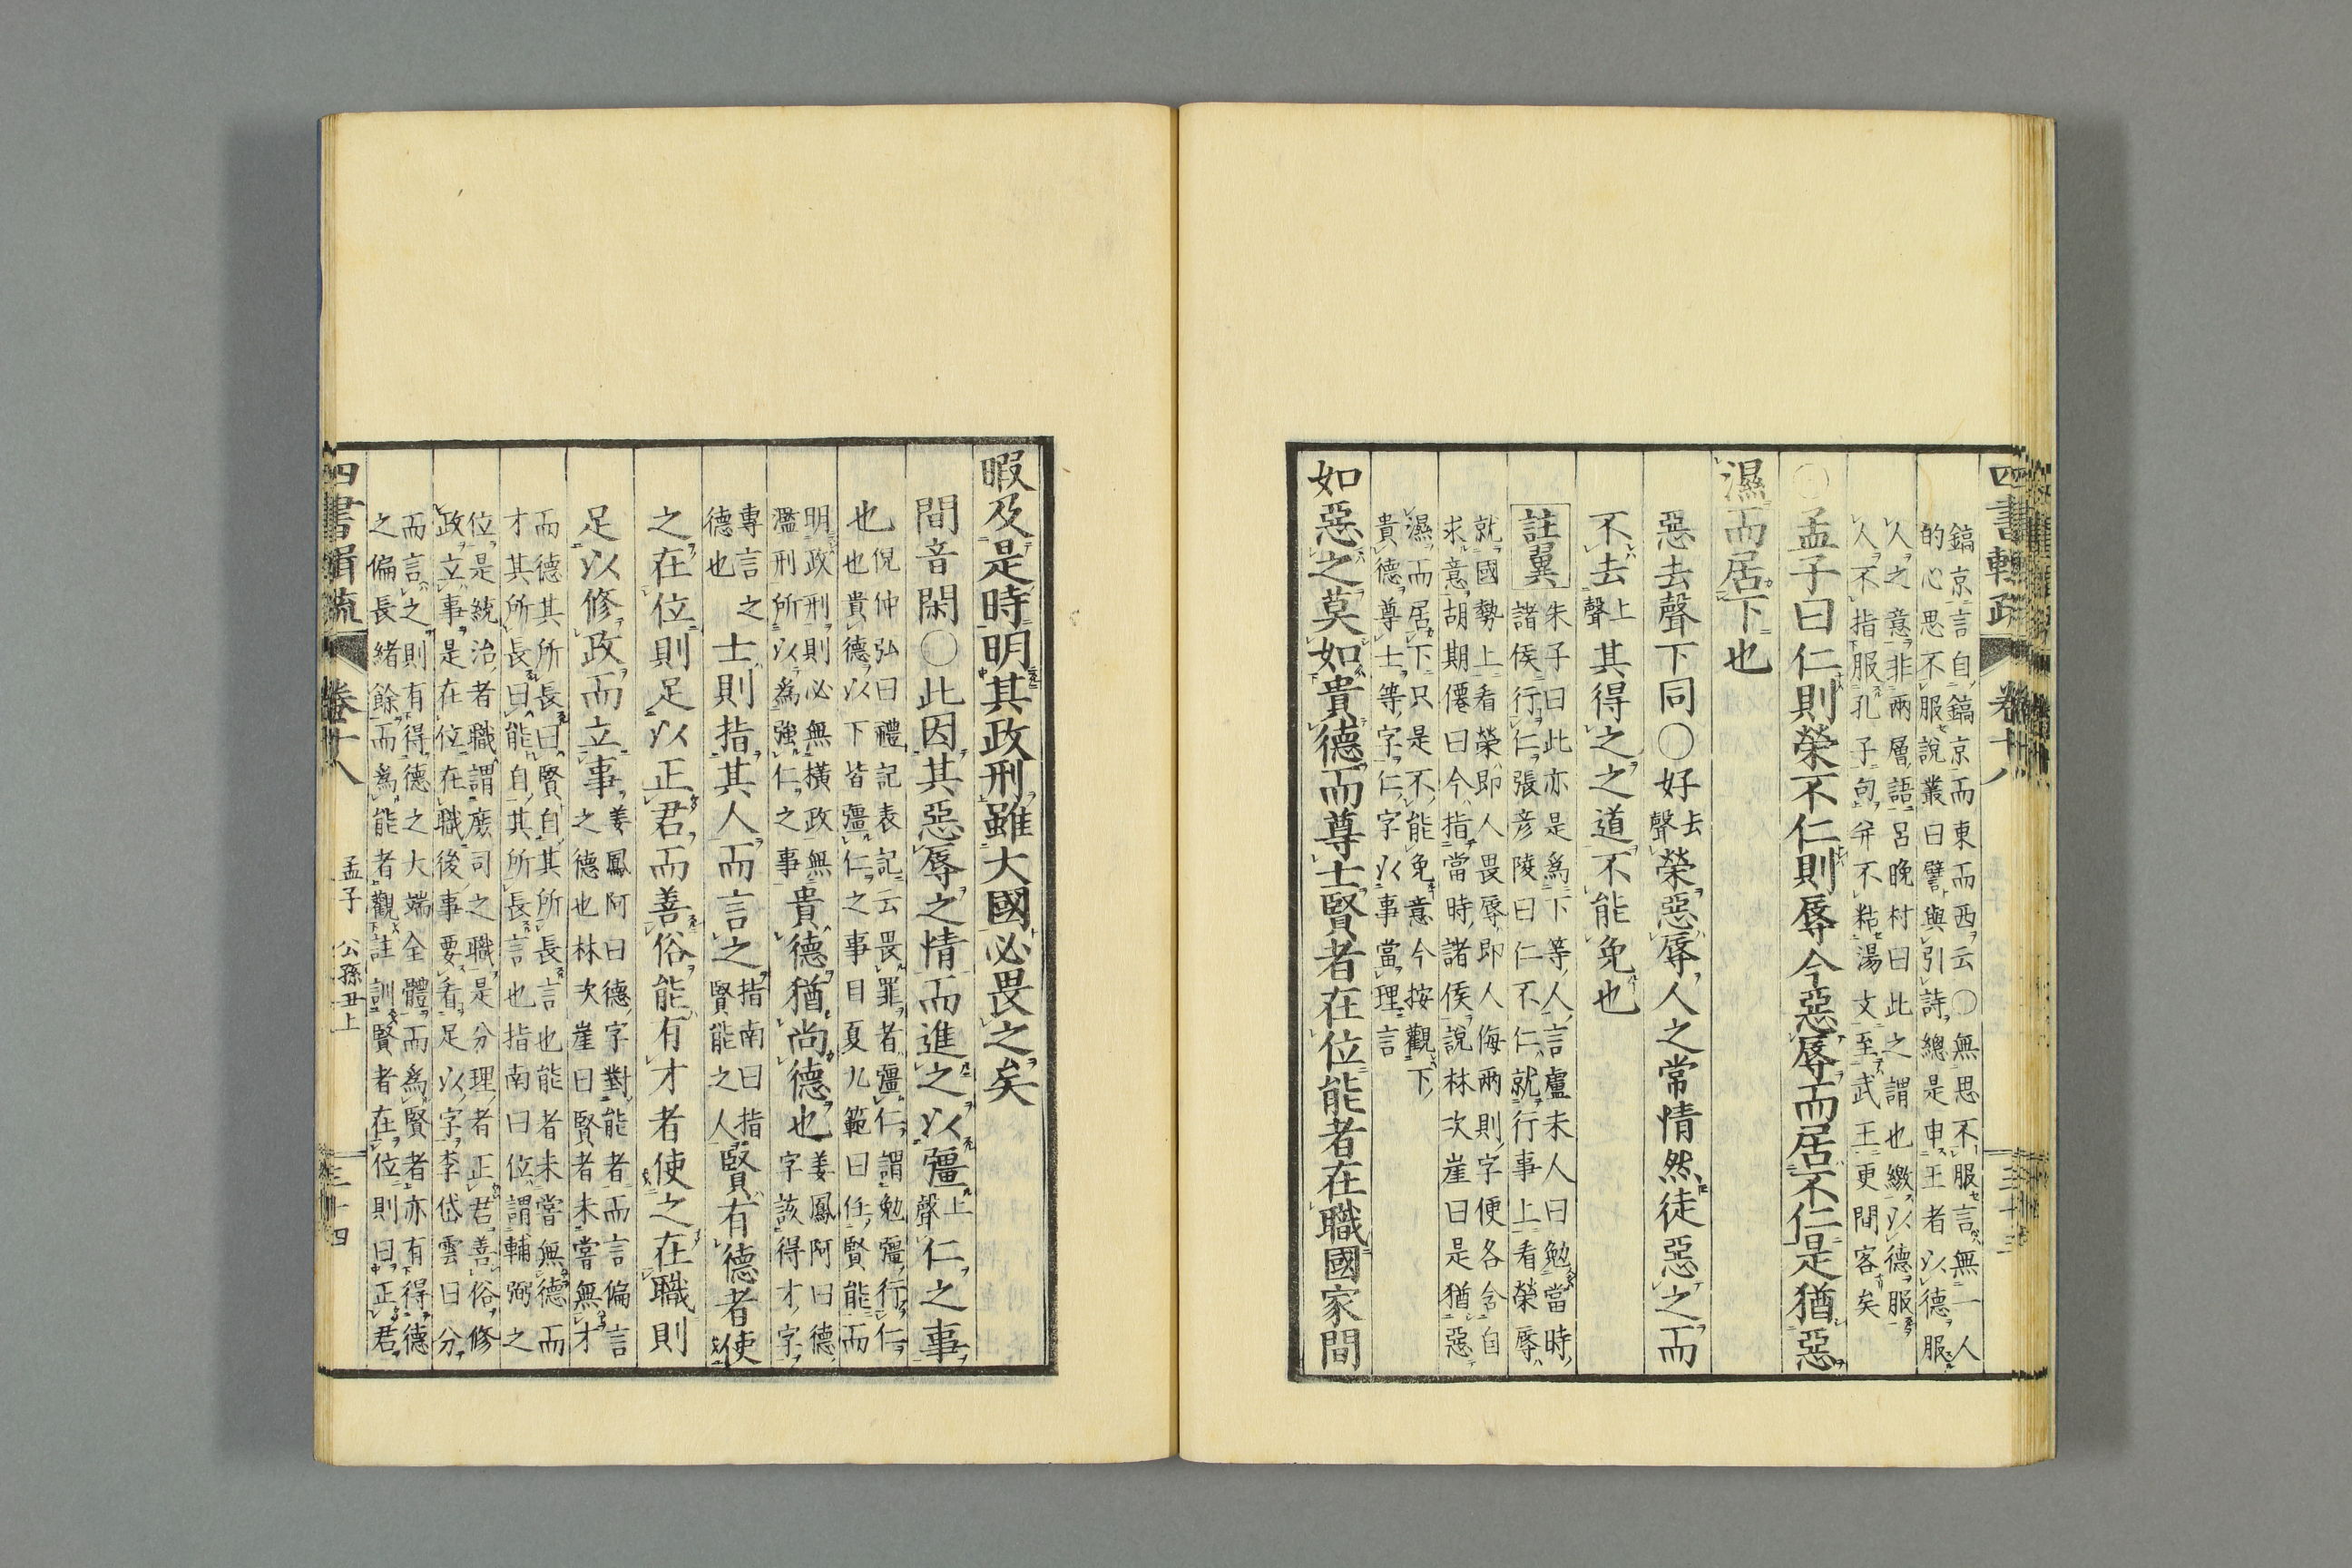 四書輯疏 卷十八 三十三
鎬京言自鎬京而東而西云〇無思不服言無一人
的心思不服說叢曰譬與引詩總是申王者以德服
人之意非兩層語呂晚村曰此之謂也繳以德服
人不指服孔子句幷不粘湯文至武王更閒客矣
〇孟子曰仁則榮不仁則辱今惡辱而居不仁是猶惡
濕而居下也
惡去聲下同〇好去聲榮惡辱人之常情然徒惡之而
不去上聲其得之之道不能免也
註翼 朱子曰此亦是爲下等人言盧未人曰勉當時
諸侯行仁張彦陵曰仁不仁就行事上看榮辱
就國勢上看榮即人畏辱即人侮兩則字便各含自
求意胡期僊曰今指當時諸侯說林次崖曰是猶惡
濕而居下只是不能免意今按觀下
貴德尊士等字仁字以事當理言
如惡之莫如貴德而尊士賢者在位能者在職國家閒
暇及是時明其政刑雖大國必畏之矣
間音閑〇此因其惡辱之情而進之以彊上聲仁之事
也倪仲弘曰禮記表記云畏罪者彊仁謂勉彊行仁
也貴德以下皆彊仁之事目夏九範曰任賢能而
明政刑則必無橫政無
濫刑所以爲強仁之事 貴德猶尚德也 姜鳳阿曰德
字該得才字
專言之
德也 士則指其人而言之 指南曰指
賢能之人 賢有德者使
之在位則足以正君而善俗能有才者使之在職則
足以修政而立事 姜鳳阿曰德字對能者而言偏言
之德也林次崖曰賢者未嘗無才
而德其所長曰賢自其所長言也能者未嘗無德而
才其所長曰能自其所長言也指南曰位謂輔弼之
位是統治者職謂庶司之職是分理者正君善俗修
政立事是在位在職後事要看足以字李岱雲曰分
而言之則有得德之大端全體而爲賢者亦有得德
之偏長緒餘而爲能者觀註訓賢者在位則曰正君
四書輯疏 卷十八 孟子 公孫丑上 三十四